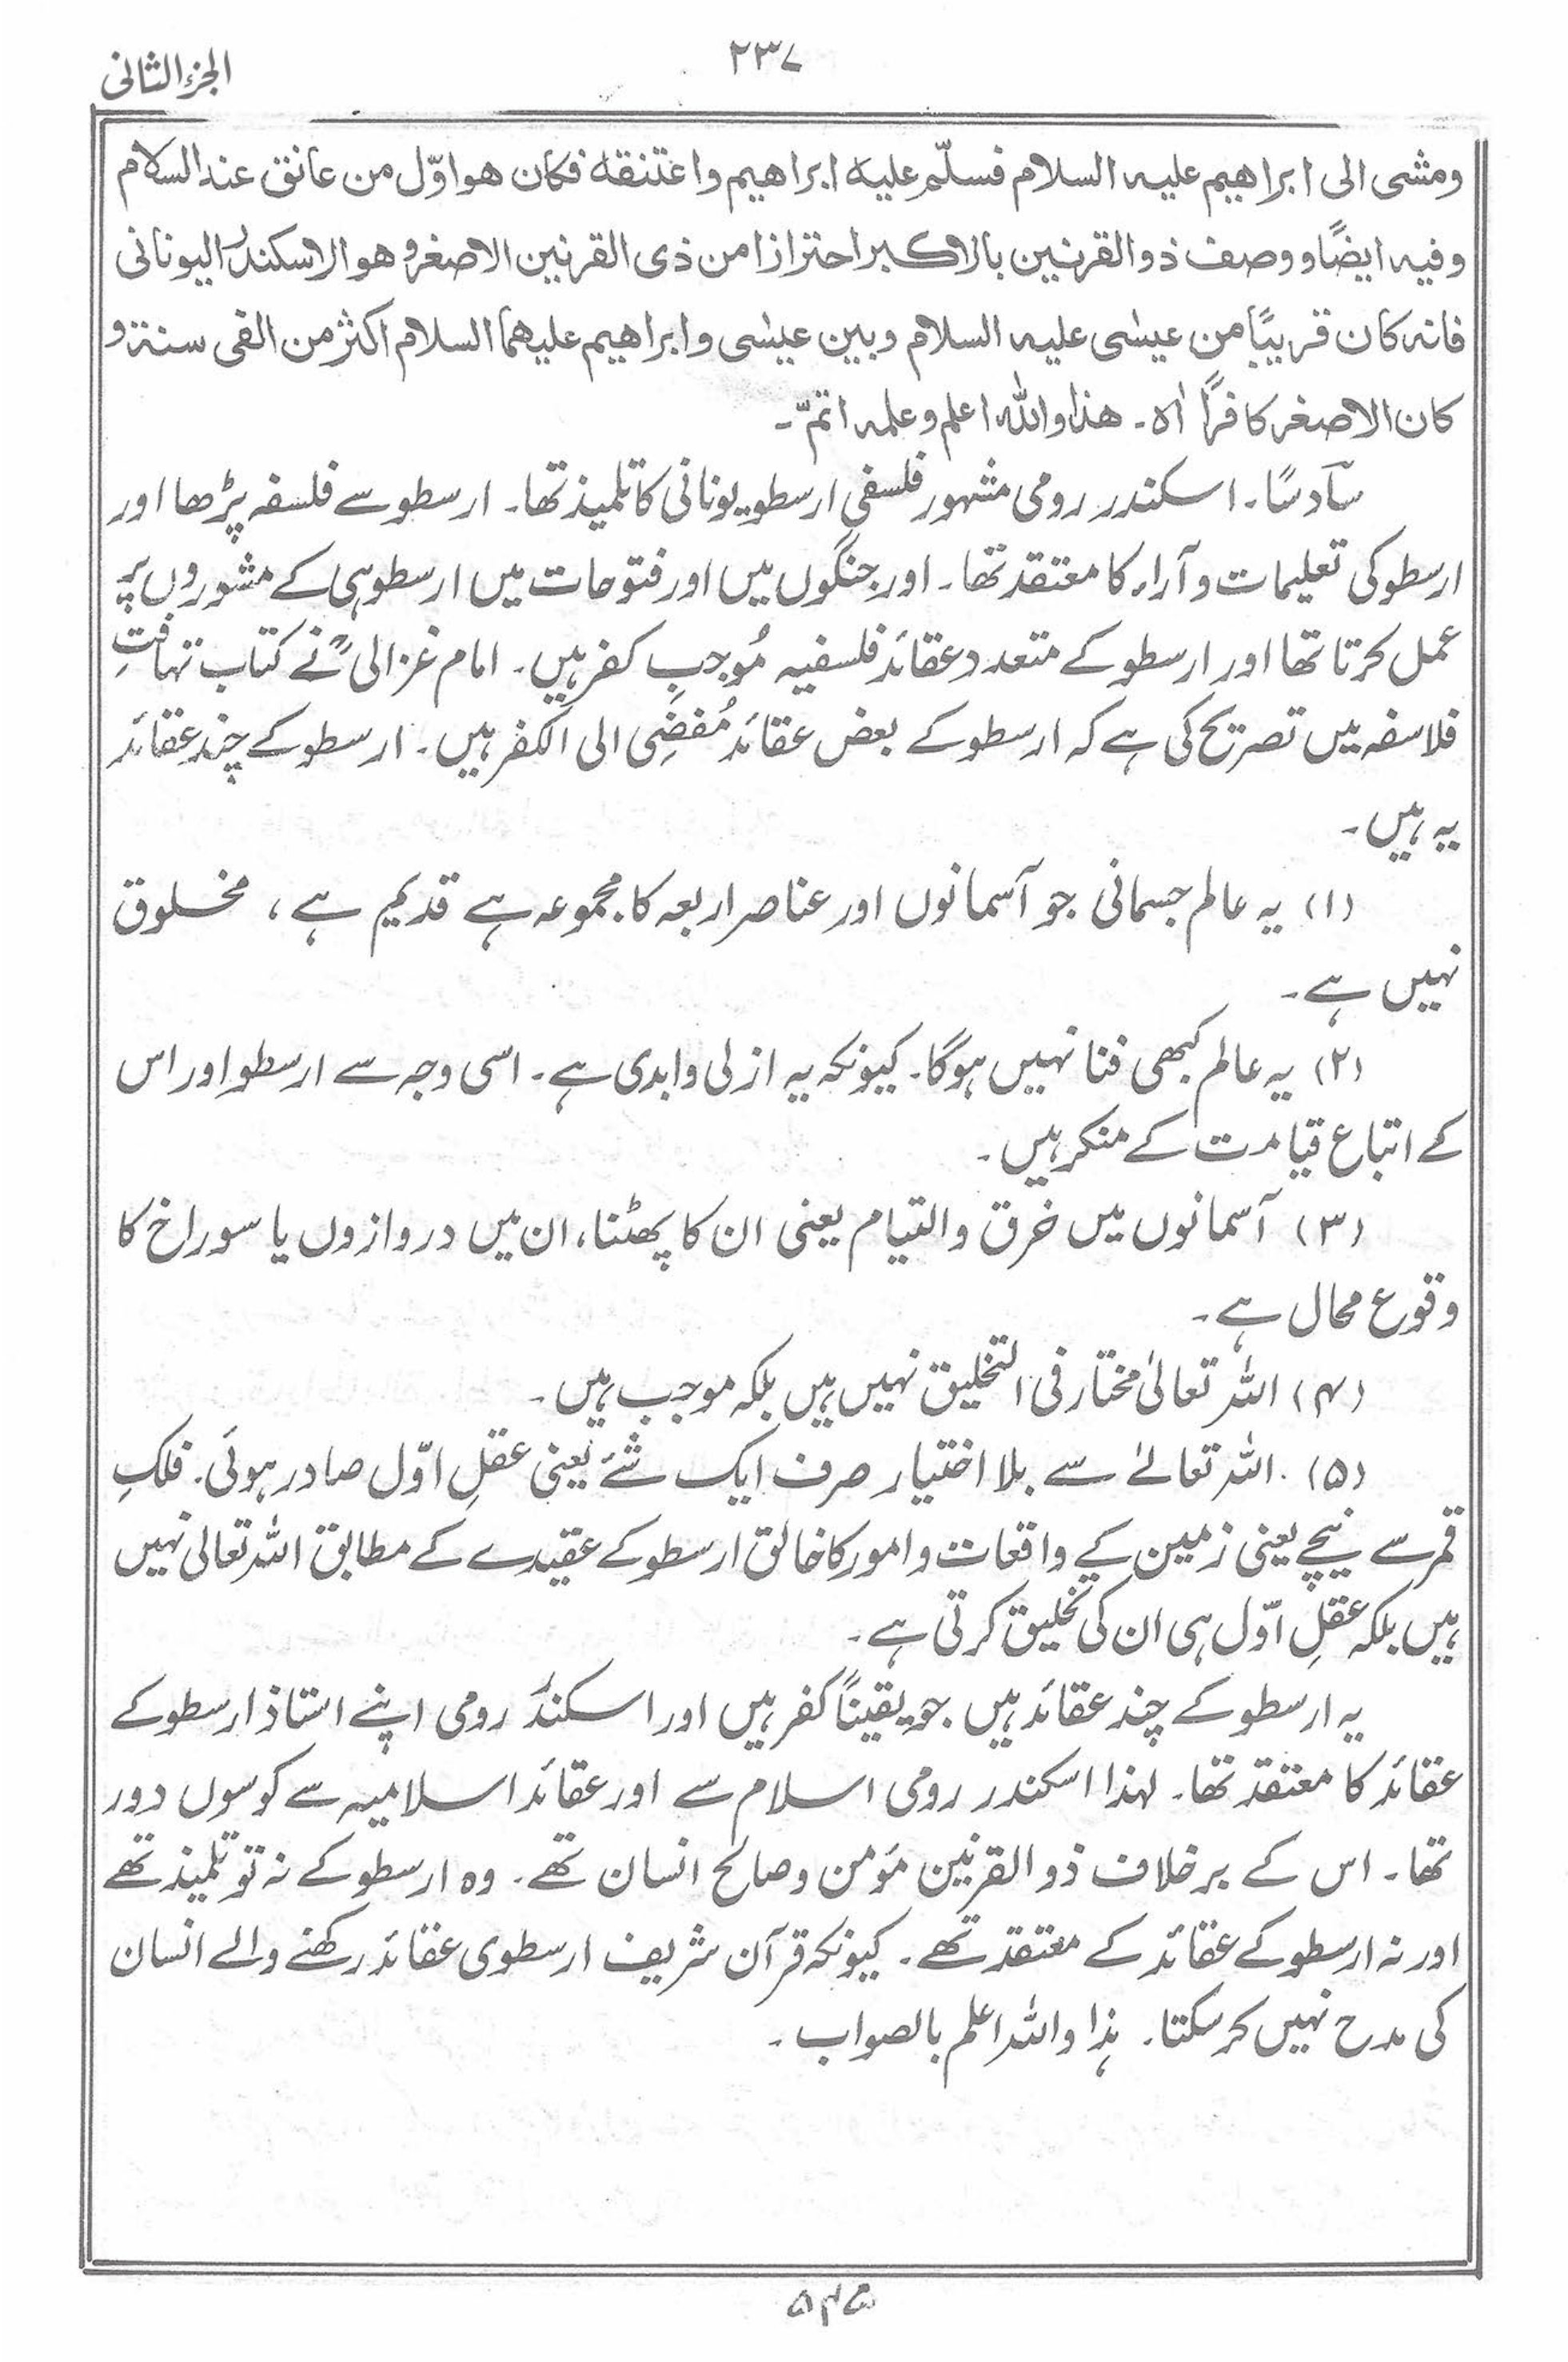 الجزء الثانی
۲۳۷
ومشی الی ابراهیم علیہ السلام فسلّم علیہ ابراهیم واعتنقہ فکان هو اوّل من عانق عند السلام
وفیہ ایضًا ووصف ذوالقرنین بالاکبر احترازا من ذی القرنین الاصغر و هو الاسکندر الیونانی
فانہ کان قریبًا من عیسٰی علیہ السلام وبین عیسٰی وابراهیم علیهما السلام اکثر من الفی سنة و
کان الاصغر کافرًا اھ۔ هذا واللہ اعلم وعلمہ اتمّ۔
سادسًا۔ اسکندر رومی مشہور فلسفی ارسطو یونانی کا تلمیذ تھا۔ ارسطو سے فلسفہ پڑھا اور
ارسطو کی تعلیمات و آراء کا معتقد تھا۔ اور جنگوں میں اور فتوحات میں ارسطو ہی کے مشوروں پر
عمل کرتا تھا اور ارسطو کے متعدد عقائد فلسفیہ مُوجبِ کفر ہیں۔ امام غزالیؒ نے کتاب تہافتِ
فلاسفہ میں تصریح کی ہے کہ ارسطو کے بعض عقائد مُفضِی الی الکفر ہیں۔ ارسطو کے چند عقائد
یہ ہیں۔
(۱) یہ عالم جسمانی جو آسمانوں اور عناصر اربعہ کا مجموعہ ہے قدیم ہے، مخلوق
نہیں ہے۔
(۲) یہ عالم کبھی فنا نہیں ہوگا۔ کیونکہ یہ ازلی وابدی ہے۔ اسی وجہ سے ارسطو اور اس
کے اتباع قیامت کے منکر ہیں۔
(۳) آسمانوں میں خرق والتیام یعنی ان کا پھٹنا، ان میں دروازوں یا سوراخ کا
وقوع محال ہے۔
(۴) اللہ تعالیٰ مختار فی التخلیق نہیں ہیں بلکہ موجب ہیں۔
(۵) اللہ تعالےٰ سے بلا اختیار صرف ایک شئے یعنی عقلِ اوّل صادر ہوئی۔ فلکِ
قمر سے نیچے یعنی زمین کے واقعات وامور کا خالق ارسطو کے عقیدے کے مطابق اللہ تعالیٰ نہیں
ہیں بلکہ عقلِ اوّل ہی ان کی تخلیق کرتی ہے۔
یہ ارسطو کے چند عقائد ہیں جو یقیناً کفر ہیں اور اسکندر رومی اپنے استاذ ارسطو کے
عقائد کا معتقد تھا۔ لہذا اسکندر رومی اسلام سے اور عقائد اسلامیہ سے کوسوں دور
تھا۔ اس کے برخلاف ذوالقرنین مؤمن وصالح انسان تھے۔ وہ ارسطو کے نہ تو تلمیذ تھے
اور نہ ارسطو کے عقائد کے معتقد تھے۔ کیونکہ قرآن شریف ارسطوی عقائد رکھنے والے انسان
کی مدح نہیں کرسکتا۔ ہذا واللہ اعلم بالصواب۔
۵۴۵